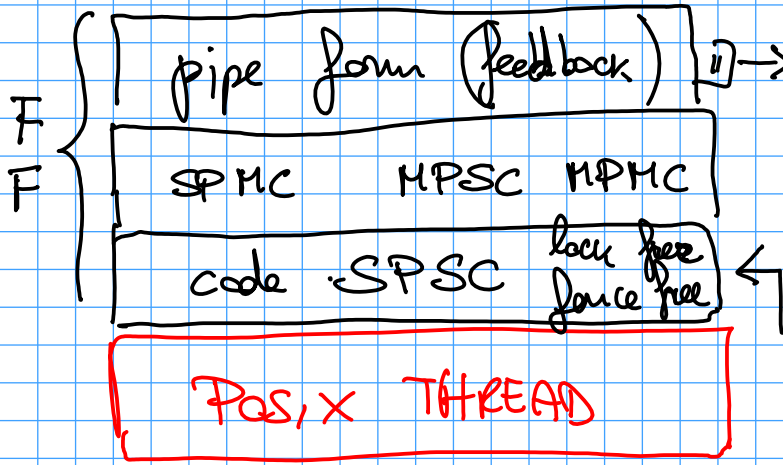 pipe form (feedback)
FF
SPMC MPSC MPMC
code SPSC lock free
fence free
POSIX THREAD